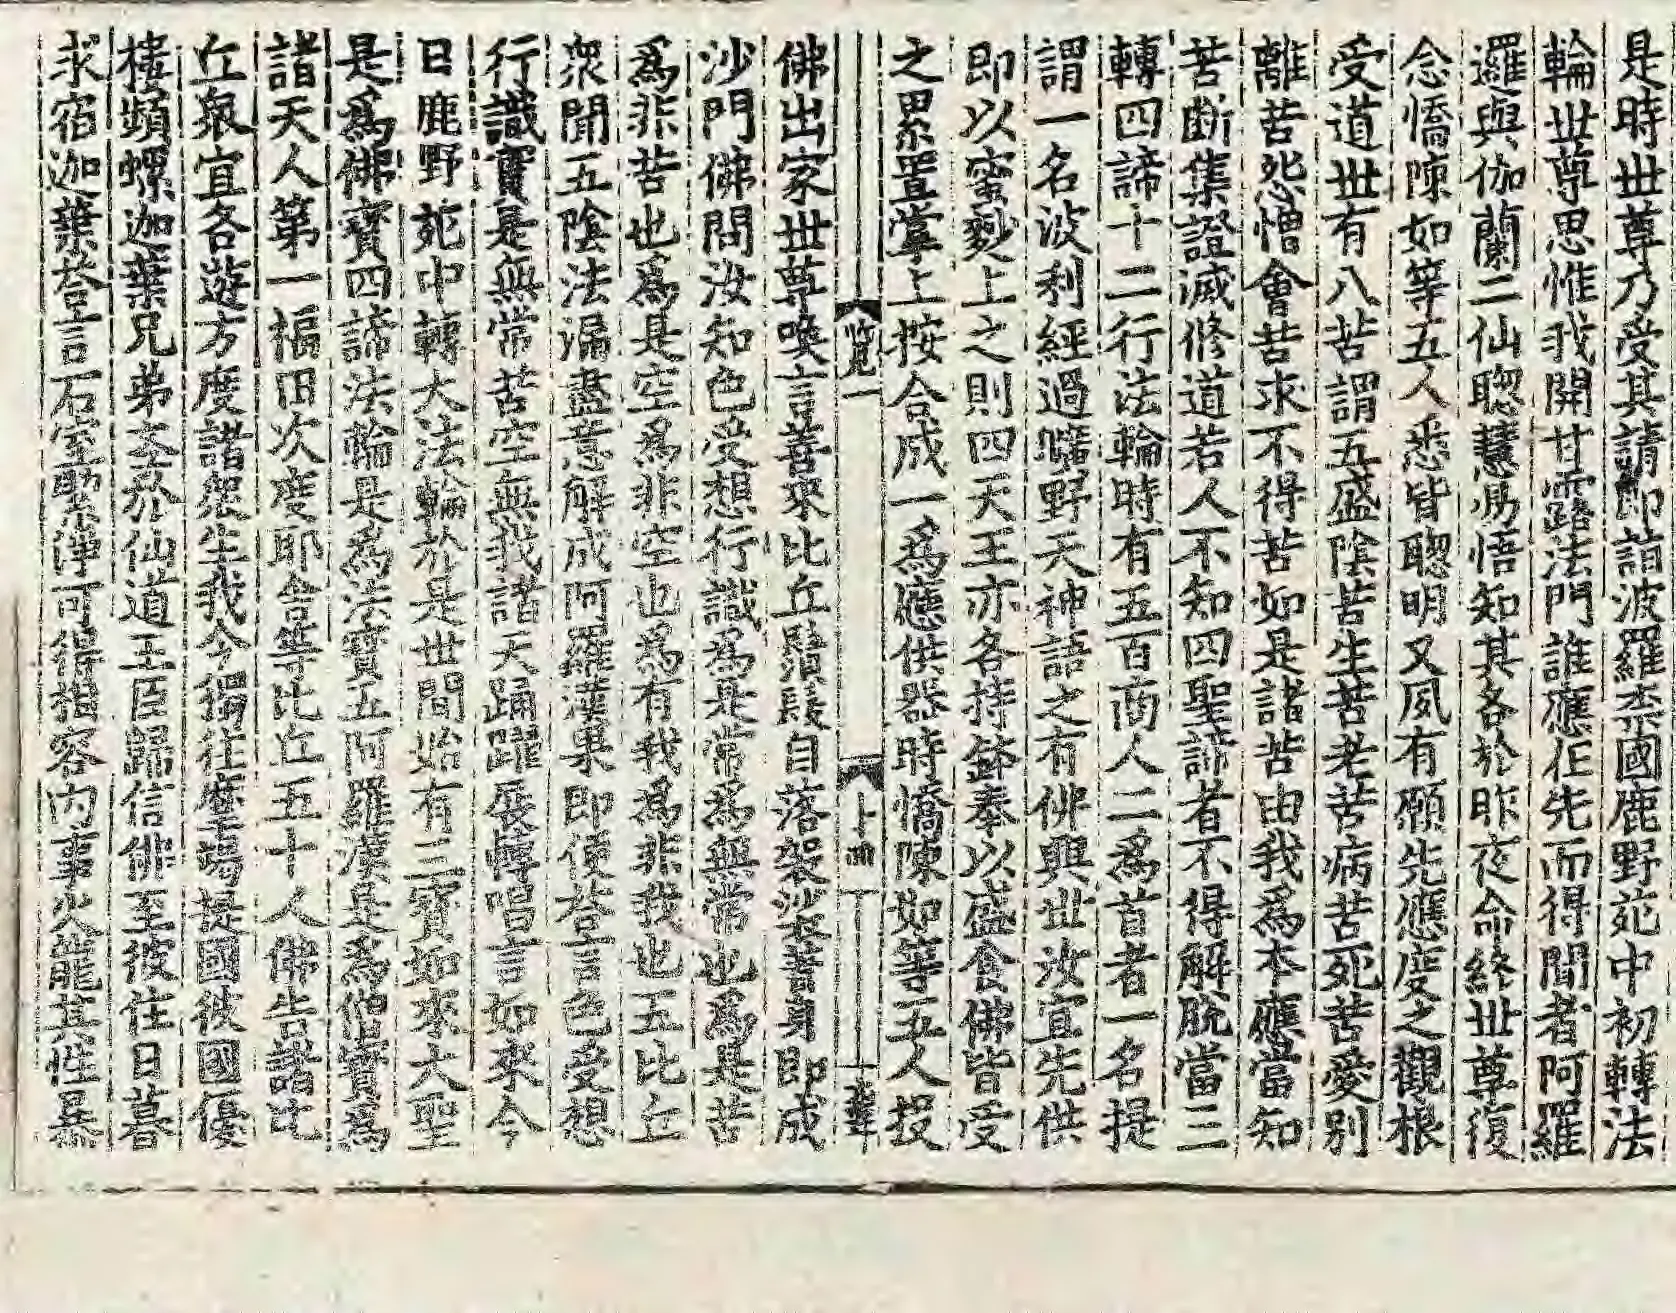 是時世尊乃受其請即詣波羅柰國鹿野苑中初轉法
輪世尊思惟我開甘露法門誰應在先而得聞者阿羅
邏與伽蘭二仙聰慧易悟知其各於昨夜命終世尊復
念憍陳如等五人悉皆聰明又夙有願先應度之觀根
受道世有八苦謂五盛陰苦生苦老苦病苦死苦愛別
離苦怨憎會苦求不得苦如是諸苦由我為本應當知
苦斷集證滅修道若人不知四聖諦者不得解脫當三
轉四諦十二行法輪時有五百商人二為首者一名提
謂一名波利經過曠野天神語之有佛興世汝宜先供
即以蜜麨上之則四天王亦各持鉢奉以盛食佛皆受
之累置掌上按合成一為應供器時憍陳如等五人投
覽一
佛出家世尊喚言善來比丘鬚髮自落袈裟著身即成
沙門佛問汝知色受想行識為是常為無常也為是苦
為非苦也為是空為非空也為有我為非我也五比丘
眾聞五陰法漏盡意解成阿羅漢果即便荅言色受想
行識實是無常苦空無我諸天踊躍展轉唱言如來今
日鹿野苑中轉大法輪於是世間始有三寶如來大聖
是為佛寶四諦法輪是為法寶五阿羅漢是為僧寶為
諸天人第一福田次度耶舍等比丘五十人佛告諸比
丘眾宜各遊方度諸眾生我今獨往摩竭提國彼國優
樓頻螺迦葉兄弟本於仙道王臣歸信佛至彼住日暮
求宿迦葉荅言石室堅潔可得相容內事火龍其性暴